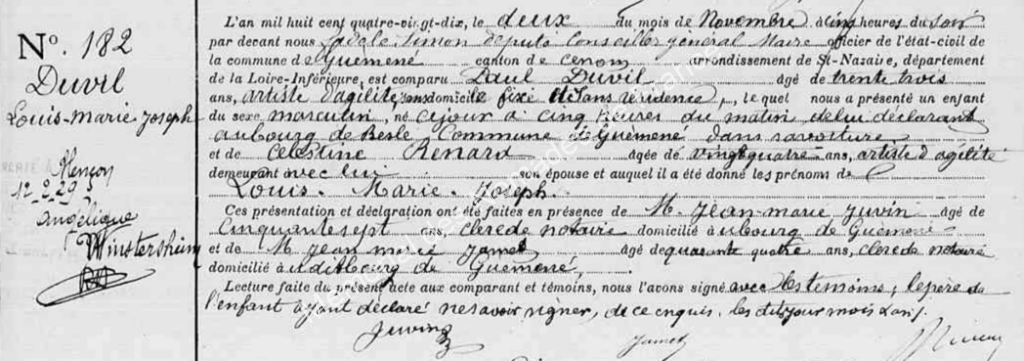 N°. 182
Duvil
Louis-Marie Joseph
Alençon
12-2-29
Angélique
Winstersheim
L'an mil huit cent quatre-vingt-dix, le deux du mois de Novembre à cinq heures du soir
par devant nous Simon député Conseiller général Maire officier de l'état-civil de
la commune de Guémené canton de cenom arrondissement de St-Nazaire, département
de la Loire-Inférieure, est comparu Paul Duvil âgé de trente trois
ans, artiste d'agilité sans domicile fixe et sans résidence, lequel nous a présenté un enfant
du sexe masculin, né ce jour à cinq heures du matin de lui déclarant
au bourg de Besle Commune de Guémené dans sa voiture
et de Célestine Renard âgée de vingt quatre ans, artiste d'agilité
demeurant avec lui son épouse et auquel il a été donné les prénoms de
Louis-Marie-Joseph.
Ces présentation et déclaration ont été faites en présence de M. Jean-marie Juvin âgé de
Cinquante sept ans, clerc de notaire domicilié au bourg de Guémené
et de M Jean marie Jamet âgé de quarante quatre ans, clerc de notaire
domicilié au dit bourg de Guémené,
Lecture faite du présent acte aux comparant et témoins, nous l'avons signé avec les temoins; le père de
l'enfant ayant déclaré ne savoir signer, de ce enquis. les dits jour mois et an.
Juvin
Jamet
Simon